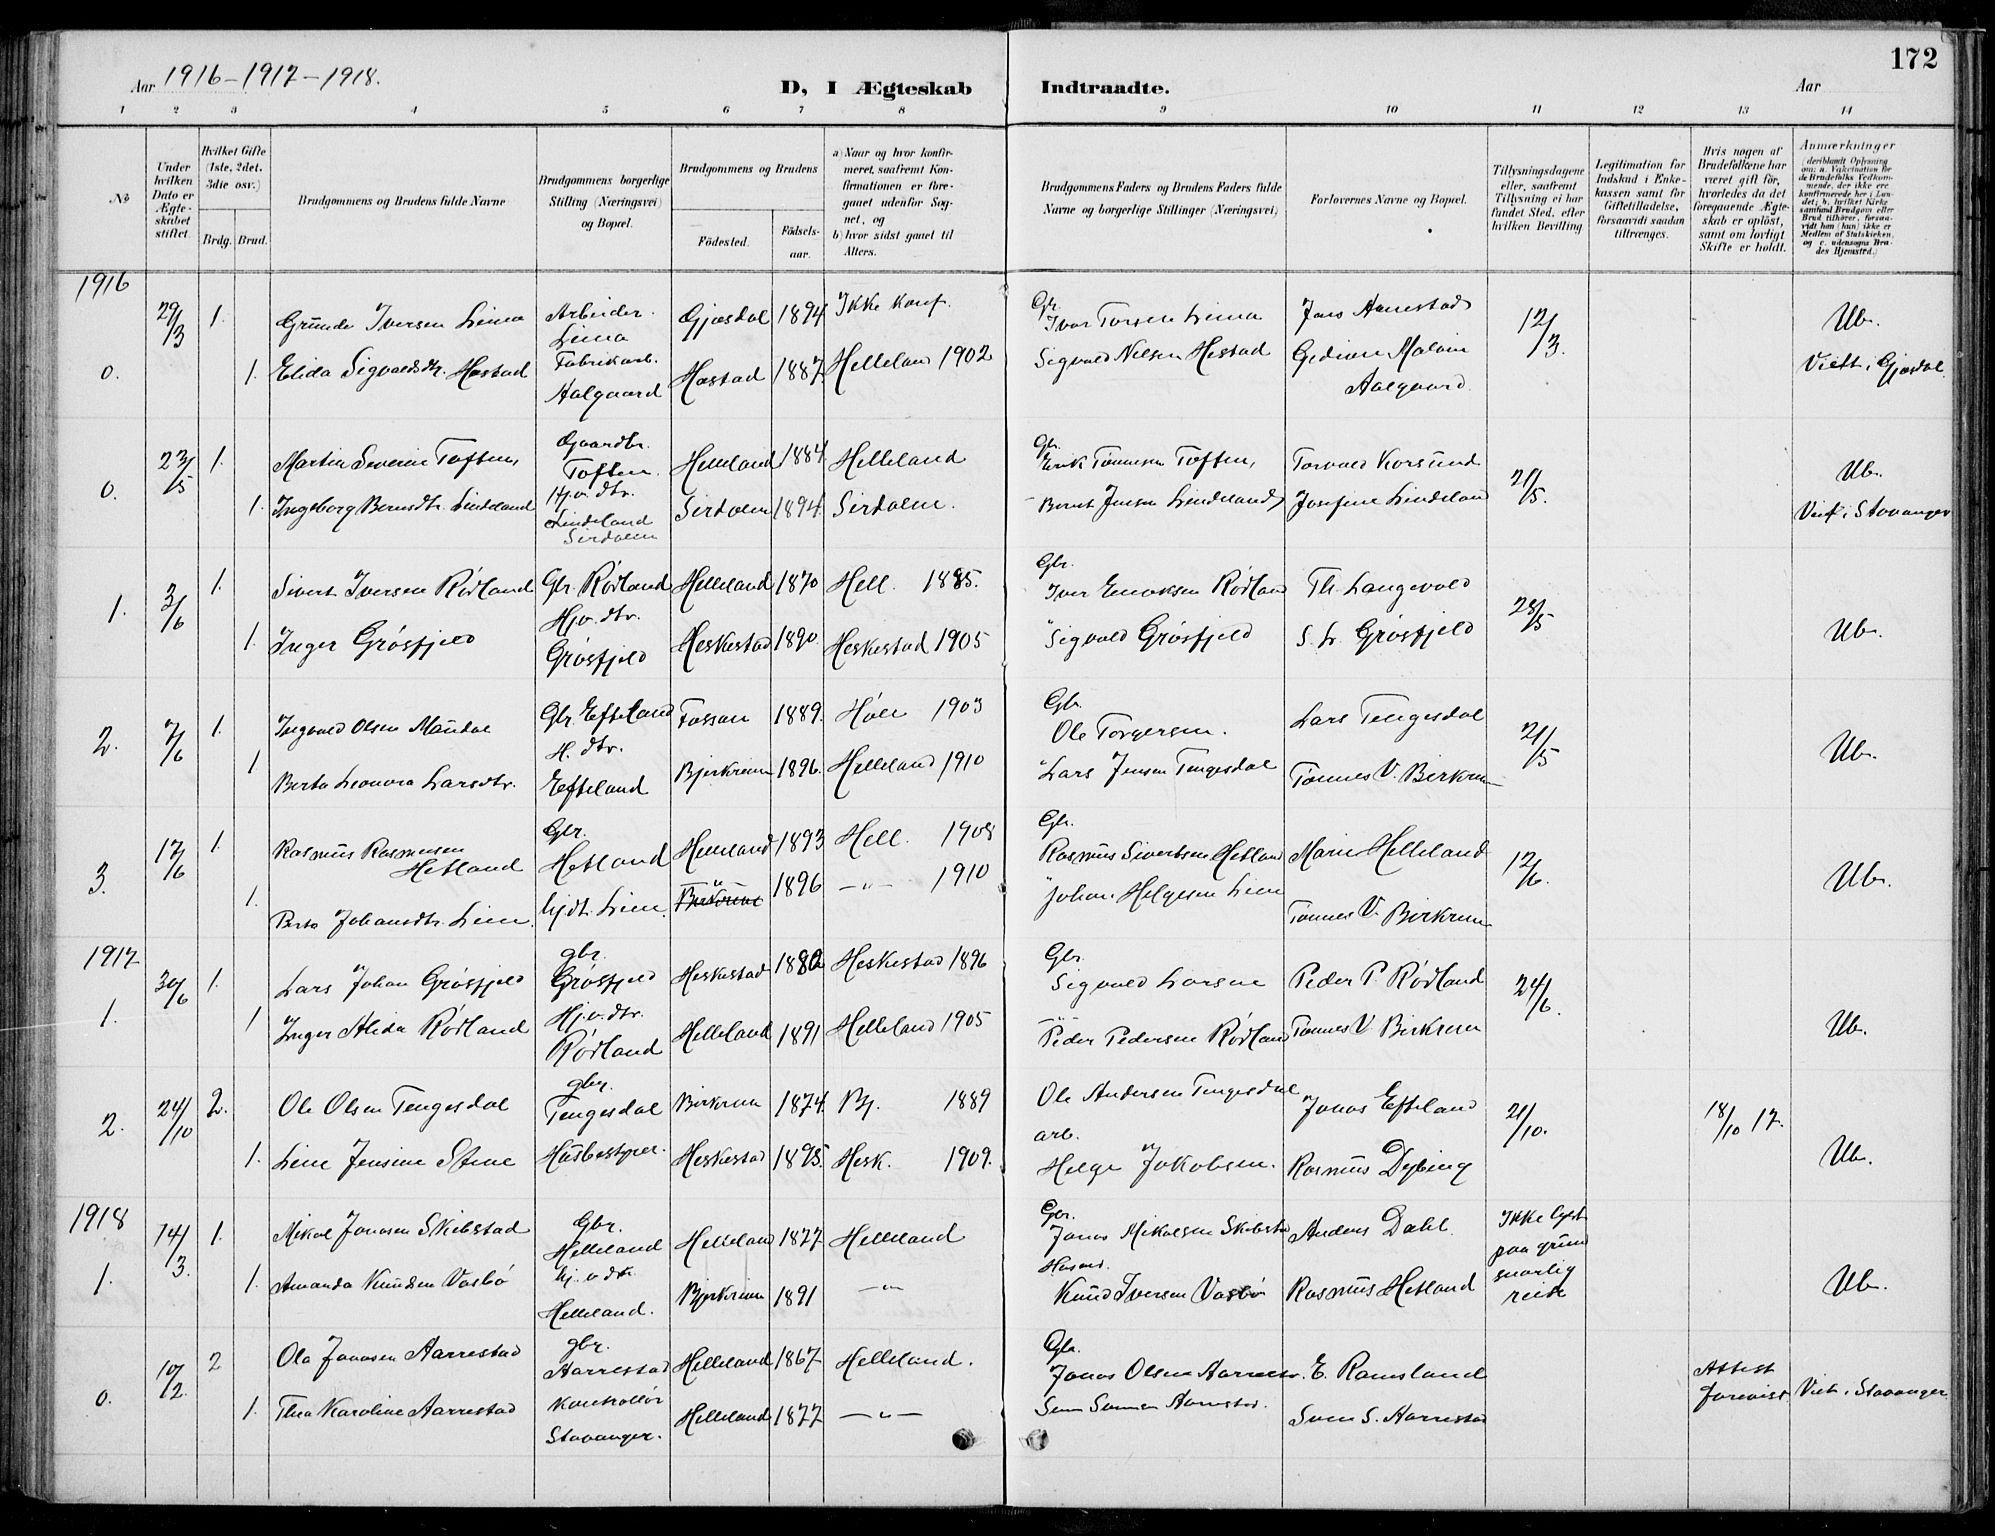 172
Aar 1916 - 1917 - 1918.
D, I Ægteskab Indtraadte.
Aar
1 2 3 4 5 6 7 8 9 10 11 12 13 14
No
Under hvilken Dato er Ægteskabet stiftet.
Hvilket Gifte (1ste, 2det, 3die osv.)
Brdg. Brud.
Brudgommens og Brudens fulde Navne
Brudgommens borgerlige Stilling (Næringsvei) og Bopæl.
Brudgommens og Brudens
Födested. Födselsaar.
a) Naar og hvor konfirmeret, saafremt Konfirmationen er foregaaet udenfor Sognet, og
b) hvor sidst gaaet til Alters.
Brudgommens Faders og Brudens Faders fulde Navne og borgerlige Stillinger (Næringsvei)
Forlovernes Navne og Bopæl.
Tillysningsdagene eller, saafremt Tillysning ei har fundet Sted, efter hvilken Bevilling.
Legitimation for Indskud i Enkekassen samt for Giftetilladelse, forsaavidt saadan tiltrænges.
Hvis nogen af Brudefolkene har været gift för, hvorledes da det foregaaende Ægteskab er oplöst, samt om lovligt Skifte er holdt.
Anmærkninger
(deriblandt Oplysning om: a. Vakcination for de Brudefolks Vedkommende, der ikke ere konfirmerede her i Landet; b. hvilket Kirkesamfund Brudgom eller Brud tilhörer, forsaavidt han (hun) ikke er Medlem af Statskirken, og c. udensogns Brudes Hjemsted.)
1916
0. 29/3 1. Grunde Iversen Lima Arbeider. Lima Gjæsdal 1894 Ikke konf. Gbr. Ivar Torsen Lima Jens Aarrestad 12/3. Ub.
1. Elida Sigvaldsdtr. Hæstad Fabrikarb. Aalgaard Hæstad 1887. Helleland 1902 Sigvald Nilsen Hestad Gedion Malmin Aalgaard Viet i Gjæsdal
0. 23/5 1. Martin Severin Toften, Gaardbr. Toften Helleland 1884 Helleland Gbr. Erik Tönnesen Toften, Torvald Korsund 21/5. Ub.
1. Ingeborg Berndtr. Lindeland Hj.v. dtr. Lindeland Sirdalen Sirdalen 1894. Sirdalen. Bernt Jensen Lindeland Josefine Lindeland Viet i Stavanger
1. 3/6 1. Sivert Iversen Rödland Gbr. Rödland Helleland 1870 Hell. 1885. Gbr. Iver Eriksen Rödland Th. Langvald 28/5
1. Inger Grösfjeld Hjv. dtr. Grösfjeld Heskestad 1890 Heskestad 1905 " Sigvald Grösfjeld S. L. Grösfjeld Ub.
2. 7/6 1. Ingvald Olsen Maudal Gbr. Efteland Fossan 1889. Höle 1903 Gbr. Ole Torgersen. Lars Tengesdal 21/5
1 Berta Leonora Larsdtr. H. dtr. Efteland Bjerkrem 1896. Helleland 1910 " Lars Jensen Tengesdal Tönnes V. Birkrem Ub.
3. 17/6 1. Rasmus Rasmussen Hetland Gbr. Hetland Helleland 1893 Hell. 1908 Gbr. Rasmus Sivertsen Hetland Marie Helleland 12/6.
1. Berta Johansdtr. Lien. hjdt. Lien. " Birkrem 1896 — " — 1910 " Johan Helgesen Lien Tönnes V. Birkrem Ub.
1917
1. 30/6 1. Lars Johan Grösfjeld gbr. Grösfjeld Heskestad 1880 Heskestad 1896 Gbr. Sigvald Larsen Peder P. Rödland 24/6.
1 Inger Alida Rödland Hj.v.dtr. Rödland Helleland 1891 Helleland 1905 — " — Peder Pedersen Rödland Tönnes V. Birkrem Ub.
2. 24/10 2. Ole Olsen Tengesdal gbr. Tengesdal Birkrem 1874. Bj. 1889 Ole Andersen Tengesdal Jonas Efteland 21/10. 18/10 17.
1. Line Jensine Stene Husbestyrer. Heskestad 1895. Hesk. 1909. arb. Helge Jakobsen. Rasmus Dybing Ub.
1918
1. 14/3. 1. Mikal Jonasen Skibstad Gbr. Helleland Helleland 1877 Helleland Gbr. Jonas Mikalsen Skibstad Anders Dahl. Ikke lyst paa grund snarlig reise
1. Amanda Knudsen Vasbö hj.v.dtr Helleland. Bjerkreim 1891 — " — Husmd. Knud Iversen Vasbö Rasmus Hetland Ub.
0. 10/12. 2 Ola Jonasen Aarrestad gbr. Aarrestad Helleland 1867 Helleland. Gbr. Jonas Olsen Aarrestad. E. Ramsland Attest forevist Viet i Stavanger
1. Thea Karoline Aarrestad Kontrollör Stavanger. Helleland 1877 — " — Sven Aarrestad. Sven S. Aarrestad